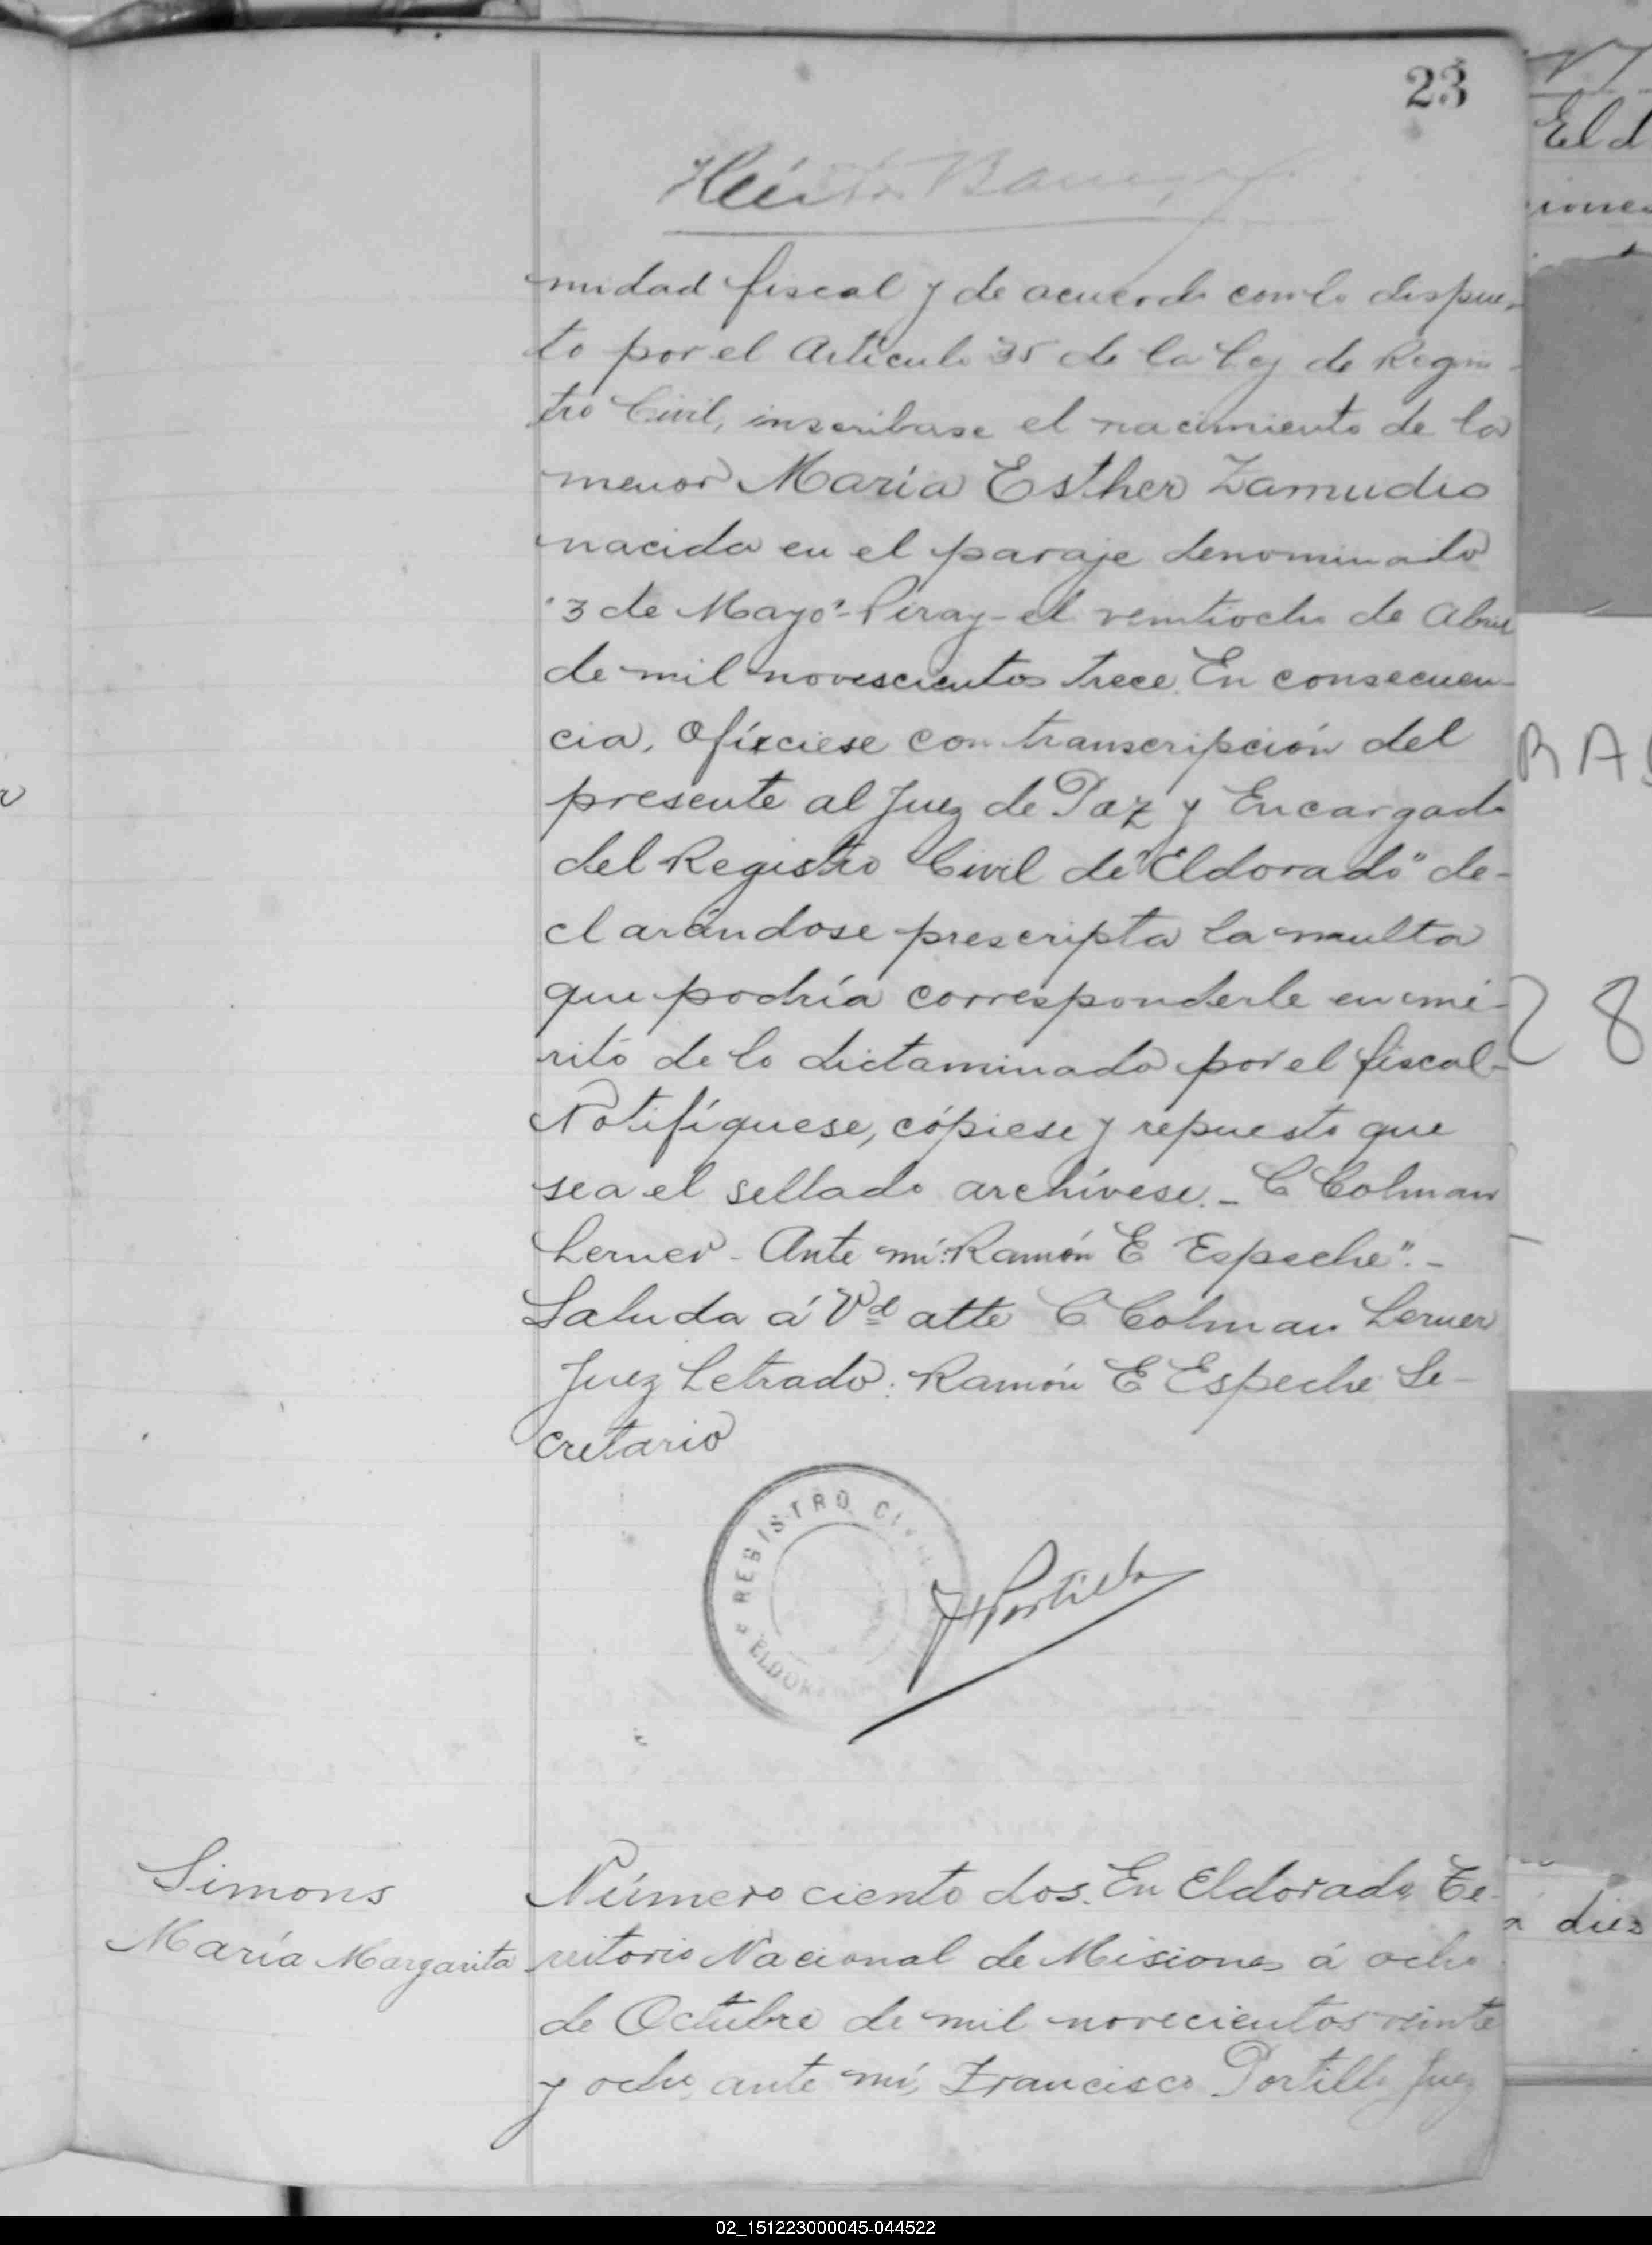 23
midad fiscal y de acuerdo con lo dispues-
to por el Articulo 35 de la Ley de Regis-
tro Civil, inscribase el nacimiento de la
menor María Esther Zamudio
nacida en el paraje denominado
"3 de Mayo"-Piray-el veintiocho de Abril
de mil novescientos trece. En consecuen-
cia, ofíciese con transcripción del
presente al Juez de Paz y Encargado
del Registro Civil de "Eldorado" de-
clarándose prescripta la multa
que podría corresponderle en mé-
rito de lo dictaminado por el fiscal-
Notifíquese, cópiese y repuesto que
sea el sellado archívese.- C Colman
Lerner - Ante mí: Ramón E Espeche".-
Saluda á Vd atte C Colman Lerner
Juez Letrado: Ramón E Espeche Se-
cretario
REGISTRO CIVIL
ELDORADO
F Portillo
Simons
María Margarita
Número ciento dos. En Eldorado, Te-
rritorio Nacional de Misiones á ocho
de Octubre de mil novecientos veinte
y ocho, ante mí, Francisco Portillo Juez
Eld
RA
28
diez
02_151223000045-044522